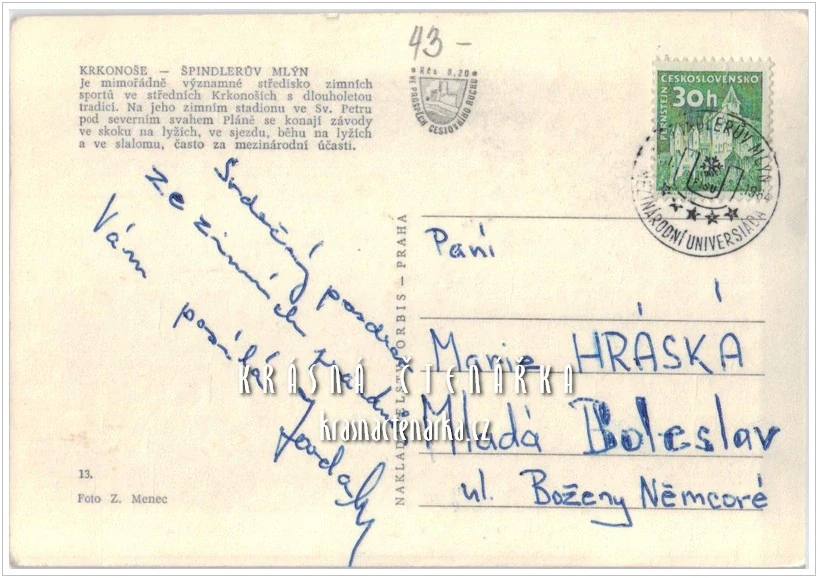 43-
KRKONOŠE — ŠPINDLERŮV MLÝN
Je mimořádně významné středisko zimních
sportů ve středních Krkonoších s dlouholetou
tradicí. Na jeho zimním stadionu ve Sv. Petru
pod severním svahem Pláně se konají závody
ve skoku na lyžích, ve sjezdu, běhu na lyžích
a ve slalomu, často za mezinárodní účasti.
Kčs 0,20
VE PROSPĚCH CESTOVNÍHO RUCHU
PERNŠTEJN
ČESKOSLOVENSKO
30h
ŠPINDLERŮV MLÝN
1964
MEZINÁRODNÍ UNIVERSIÁDA
Srdečný pozdrav
ze zimních
Vám posílá
NAKLADATELSTVÍ ORBIS — PRAHA
Paní
Marie HRÁSKÁ
Mladá Boleslav
ul. Boženy Němcové
KRÁSNÁ ČTENÁŘKA
krasnactenarka.cz
13.
Foto Z. Menec